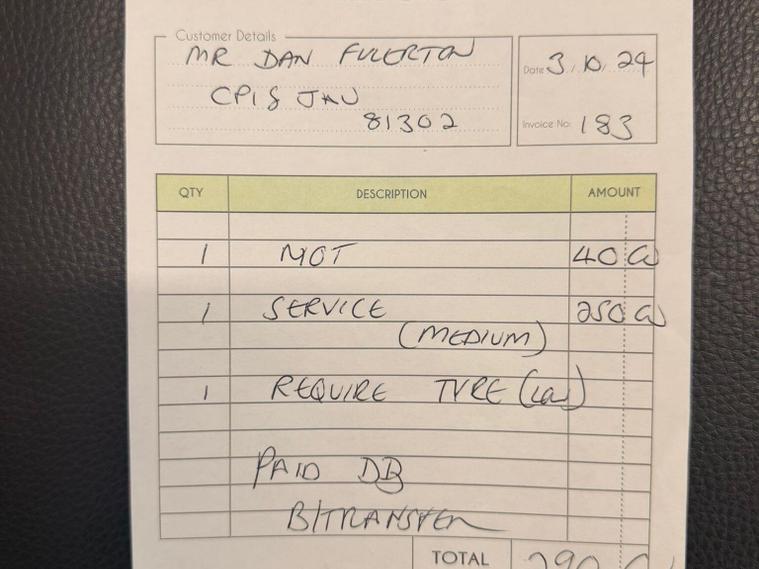 Customer Details
MR DAN FULERTON
CP18 JAU
81302
Date 3.10.24
Invoice No: 183
QTY DESCRIPTION AMOUNT
1 MOT 40 00
1 SERVICE 250 00
(MEDIUM)
1 REQUIRE TYRE
PAID DB
B/TRANSFER
TOTAL 290